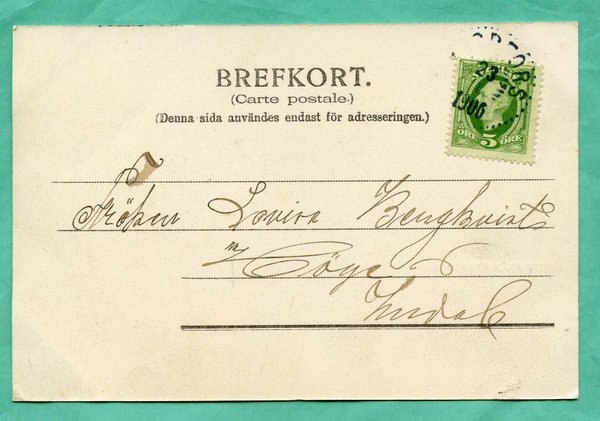 BREFKORT.
(Carte postale.)
(Denna sida användes endast för adresseringen.)
23
1906
ÖRE 5 ÖRE
Fröken Lovisa Bengkvist
Höge
Indal